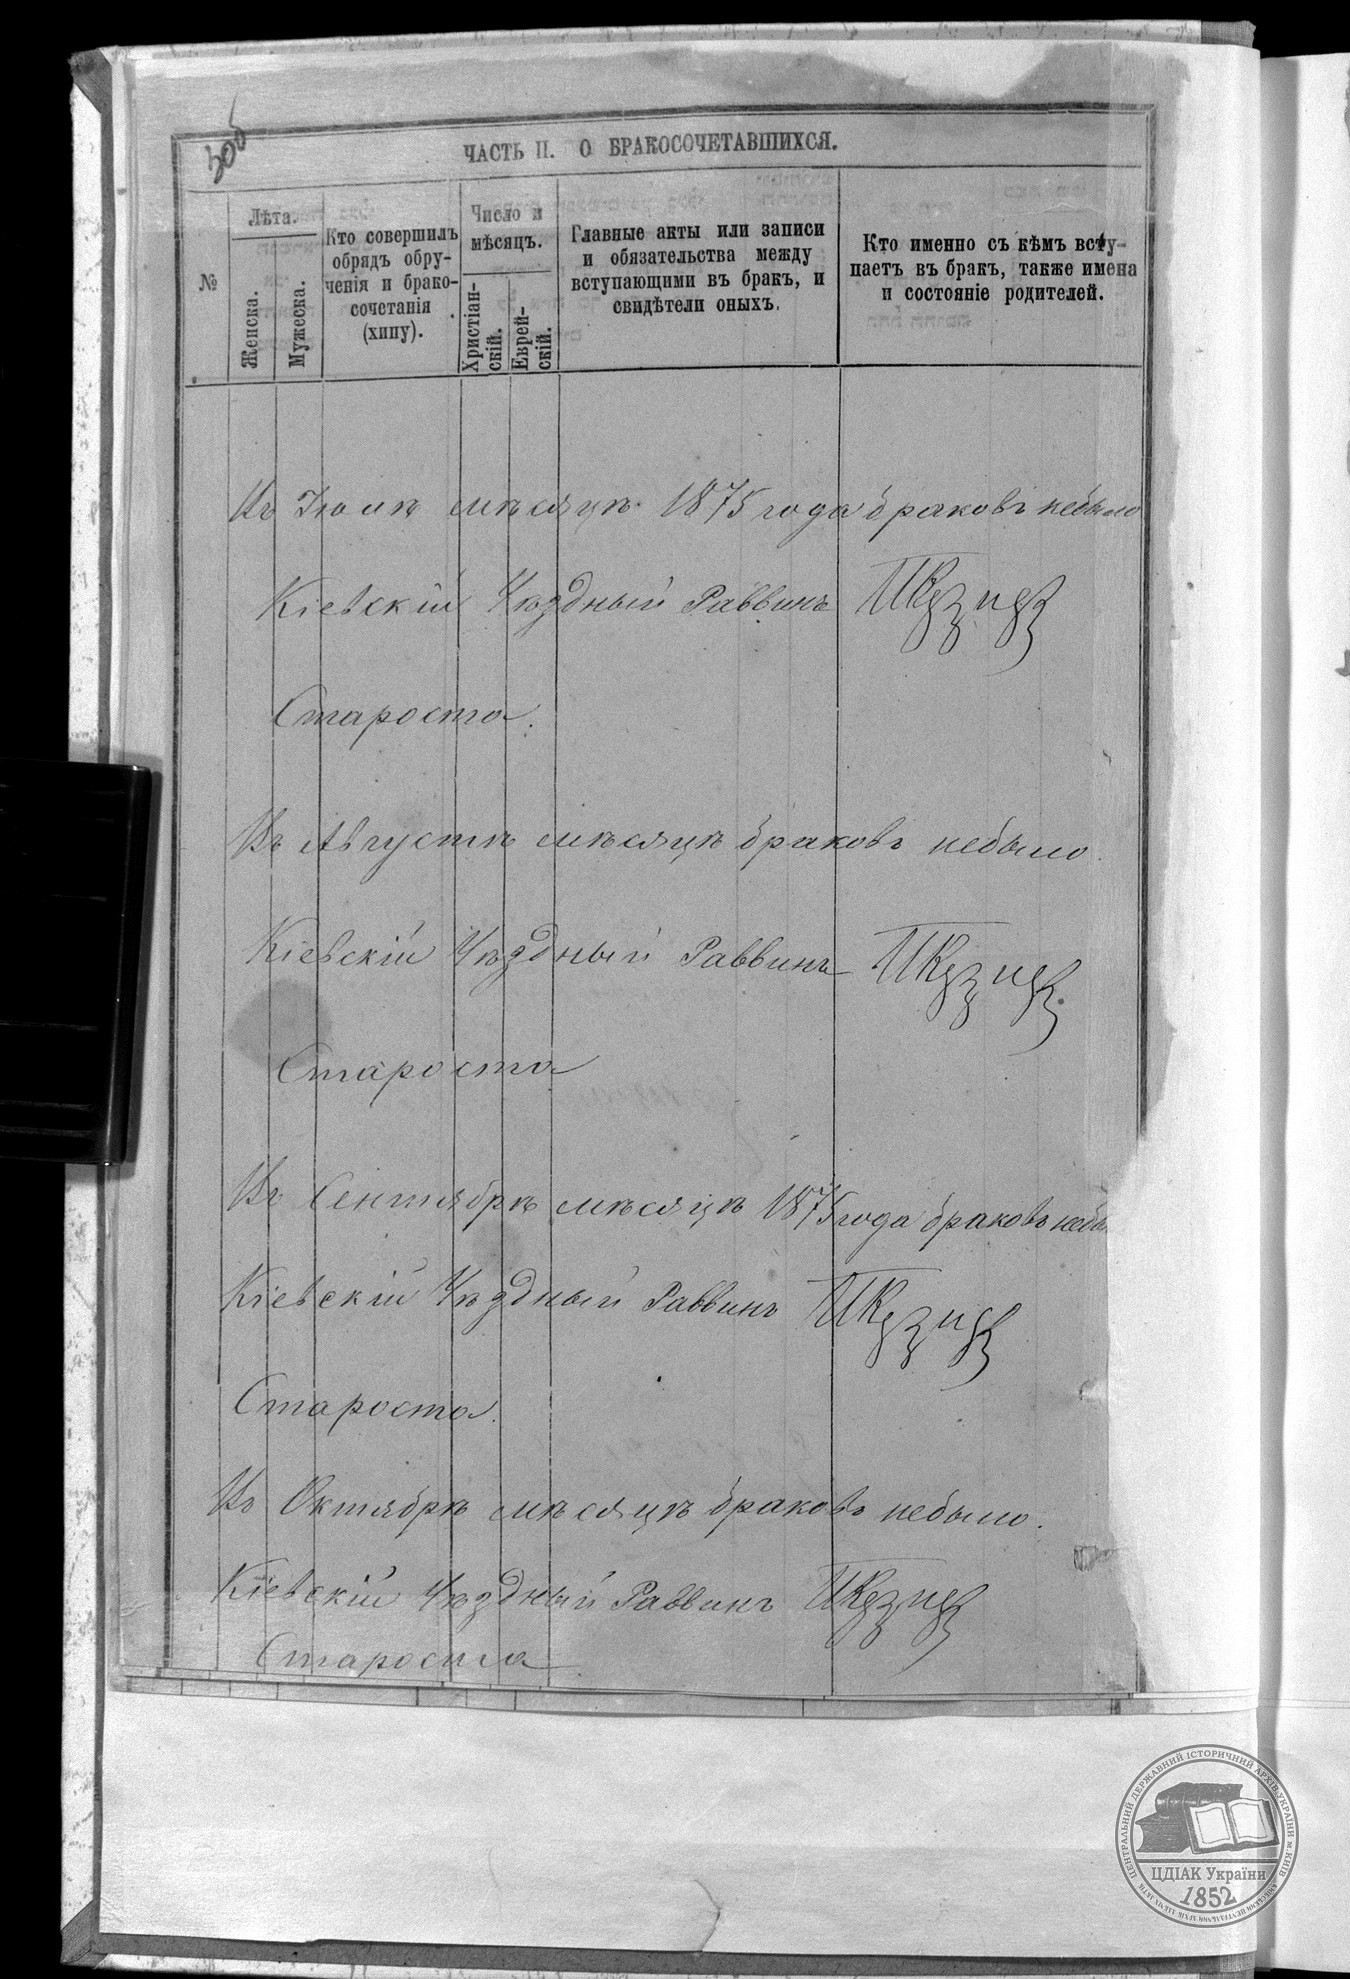 30б
ЧАСТЬ II. О БРАКОСОЧЕТАВШИХСЯ.
№
Лѣта.
Женска.
Мужеска.
Кто совершилъ
обрядъ обру-
ченія и брако-
сочетанія
(хипу).
Число и
мѣсяцъ.
Христіан-
скій.
Еврей-
скій.
Главные акты или записи
и обязательства между
вступающими въ бракъ, и
свидѣтели оныхъ.
Кто именно съ кѣмъ всту-
паетъ въ бракъ, также имена
и состояніе родителей.
Въ Іюлѣ мѣсяцѣ 1875 года браковъ небыло
Кіевскій Уѣздный Раввинъ
Староста
Въ Августѣ мѣсяцѣ браковъ небыло.
Кіевскій Уѣздный Раввинъ
Староста
Въ Сентябрѣ мѣсяцѣ 1875 года браковъ небы
Кіевскій Уѣздный Раввинъ
Староста
Въ Октябрѣ мѣсяцѣ браковъ небыло.
Кіевскій Уѣздный Раввинъ
Староста
ЦЕНТРАЛЬНИЙ ДЕРЖАВНИЙ ІСТОРИЧНИЙ АРХІВ УКРАЇНИ м. КИЇВ
ЦДІАК України
1852